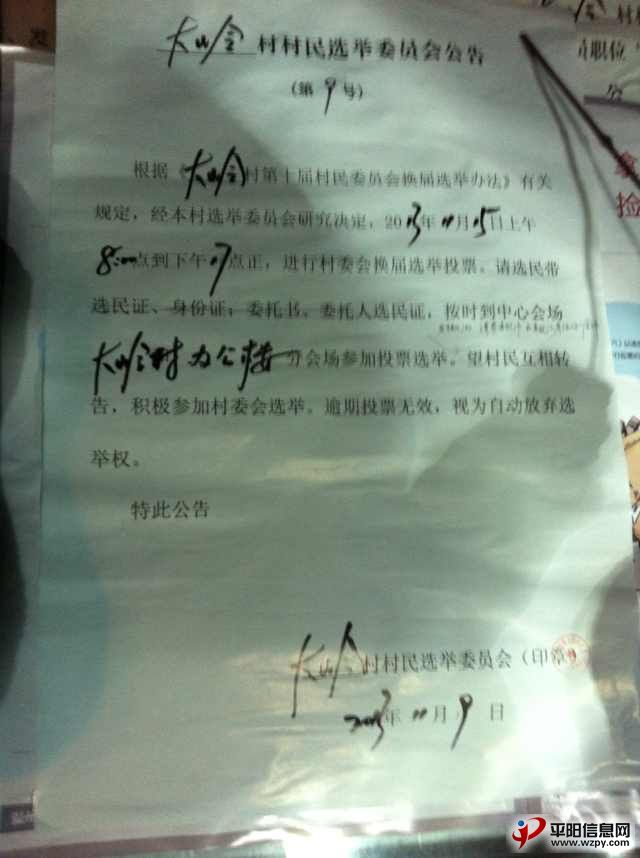 大岭村村民选举委员会公告
(第9号)
根据《大岭村第十届村民委员会换届选举办法》有关
规定，经本村选举委员会研究决定，2013年11月15日上午
8:00点到下午17点正，进行村委会换届选举投票。请选民带
选民证、身份证；委托书。委托人选民证，按时到中心会场
大岭村办公楼分会场参加投票选举。望村民互相转
告，积极参加村委会选举。逾期投票无效，视为自动放弃选
举权。
特此公告
大岭村村民选举委员会（印章）
2013年11月9日
发
村
职位
拿
捡
平阳信息网
www.wzpy.com